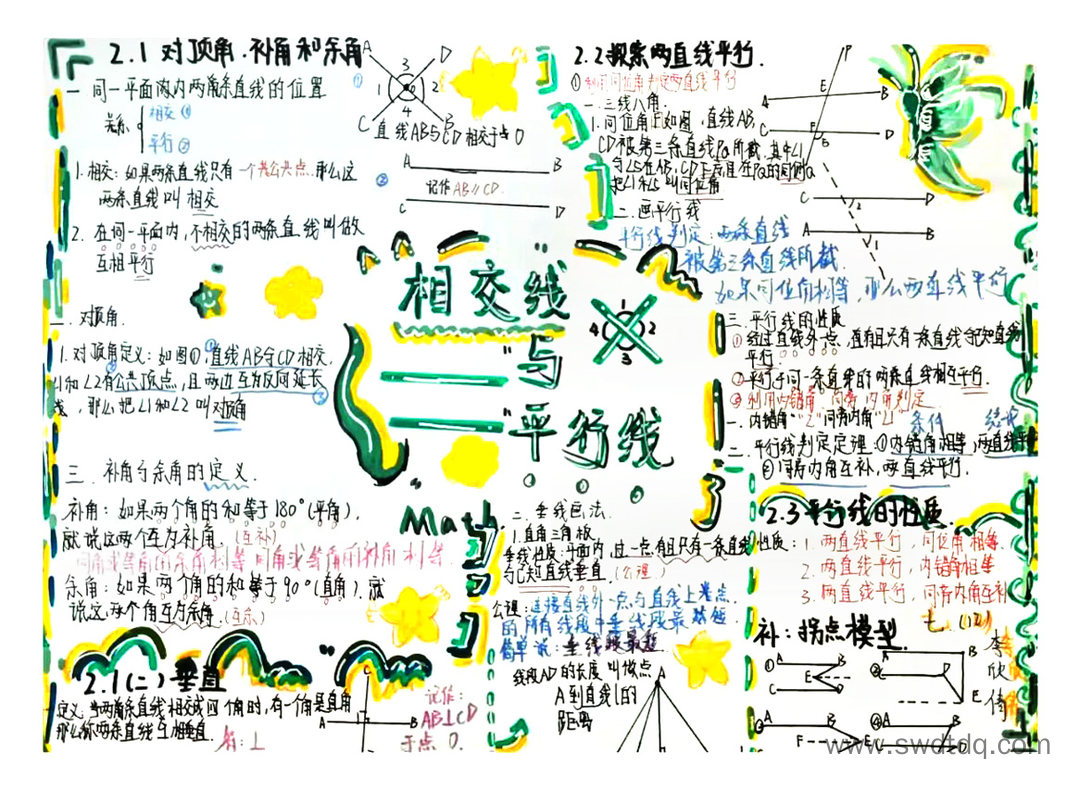 2.1 对顶角、补角和余角
一 同一平面内两条直线的位置
关系
相交 ①
平行 ②
1.相交:如果两条直线只有一个公共点,那么这
两条直线叫相交
2. 在同一平面内,不相交的两条直线叫做
互相平行
①
A
D
3
1
2
4
C
B
直线AB与CD相交于点O
②
A
B
记作AB∥CD.
C
D
二.对顶角.
1.对顶角定义:如图①,直线AB与CD相交,
∠1和∠2有公共顶点,且两边互为反向延长
线,那么把∠1和∠2叫对顶角
三.补角与余角的定义.
补角:如果两个角的和等于180°(平角),
就说这两个互为补角.(互补)
同角或等角的余角相等 同角或等角的补角相等.
余角:如果两个角的和等于90°(直角),就
说这两个角互为余角.(互余)
2.1(二)垂直
定义:当两条直线相交成四个角时,有一个角是直角
那么称两条直线互相垂直.
A
B
C
记作:
AB⊥CD
于点O.
相交线
"与
平行线
4
1
2
3
Math
二.垂线画法.
1.直角三角板
垂线性质:平面内,过一点有且只有一条直线
与已知直线垂直.(公理)
公理:连接直线外一点与直线上各点
的所有线段中垂线段最短
简单说:垂线段最短
线段AD的长度叫做点
A到直线l的
距离
A
2.2探索两直线平行.
①利用同位角判定两直线平行
一.三线八角.
1.同位角:如图,直线AB,
CD被第三条直线PQ所截,其中∠1
与∠5在AB,CD下方且在PQ的同侧
把∠1和∠5叫同位角
二.画平行线
平行线判定:两条直线
被第三条直线所截
如果同位角相等,那么两直线平行
P
A
E
B
C
F
D
5
C
2
D
A
B
1
三.平行线的性质
①经过直线外一点,有且只有一条直线与已知直线
平行.
②平行于同一条直线的两条直线相互平行.
③利用内错角、同旁内角判定
一.内错角"Z"同旁内角
条件
结论
二.平行线判定定理:①内错角相等,两直线平行
②同旁内角互补,两直线平行.
2.3平行线的性质.
性质:1.两直线平行,同位角相等.
2.两直线平行,内错角相等
3.两直线平行,同旁内角互补
七.(12)
李
欣
倚
补:拐点模型
①
A
B
E
C
D
②
A
B
D
E
③
A
B
F
E
④
A
B
www.swdtdq.com